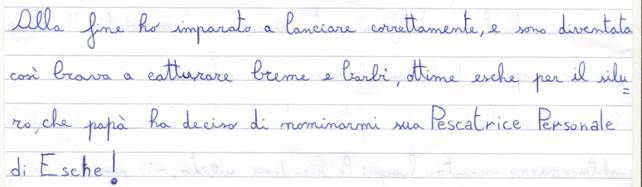 Alla fine ho imparato a lanciare correttamente, e sono diventata
così brava a catturare breme e barbi, ottime esche per il silu=
ro, che papà ha deciso di nominarmi sua Pescatrice Personale
di Esche!